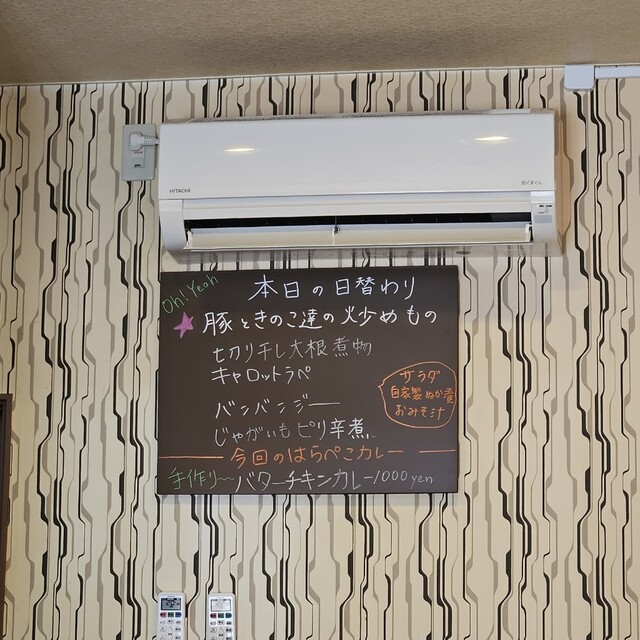 HITACHI
白くまくん
Oh! Yeah
本日の日替わり
豚ときのこ達の炒めもの
切り干し大根煮物
キャロットラペ
バンバンジー
じゃがいもピリ辛煮
サラダ
自家製ぬか漬
おみそ汁
今回のはらぺこカレー
手作り〜バターチキンカレー1000yen